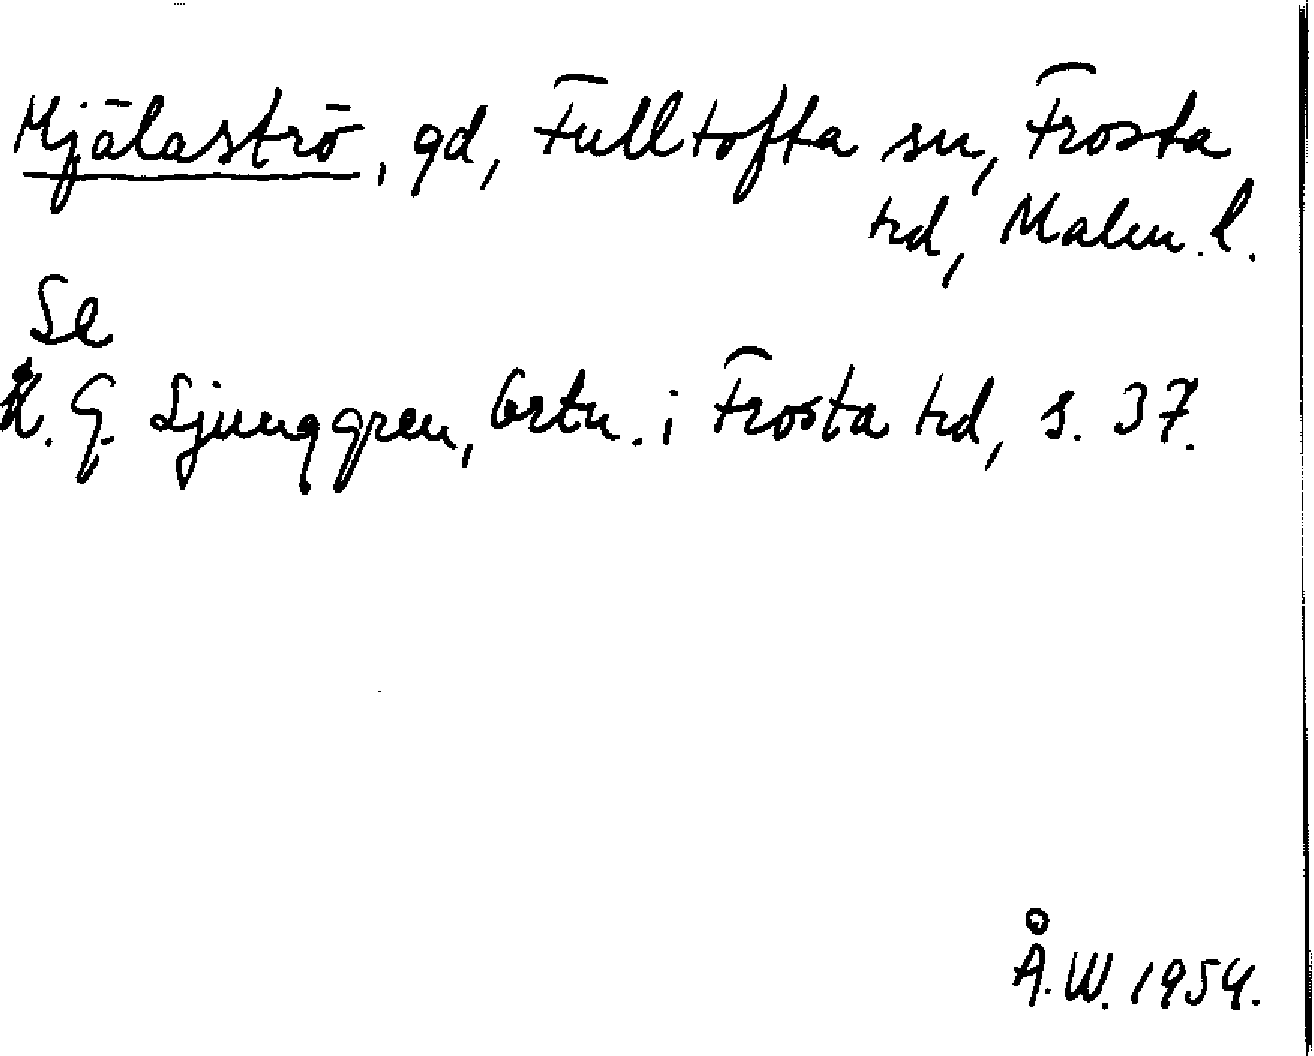 Mjälaströ, gd, Fulltofta sn, Frosta
hd, Malm. l.
Se
K. G. Ljunggren, Ortn. i Frosta hd, s. 37.
Å. W. 1954.